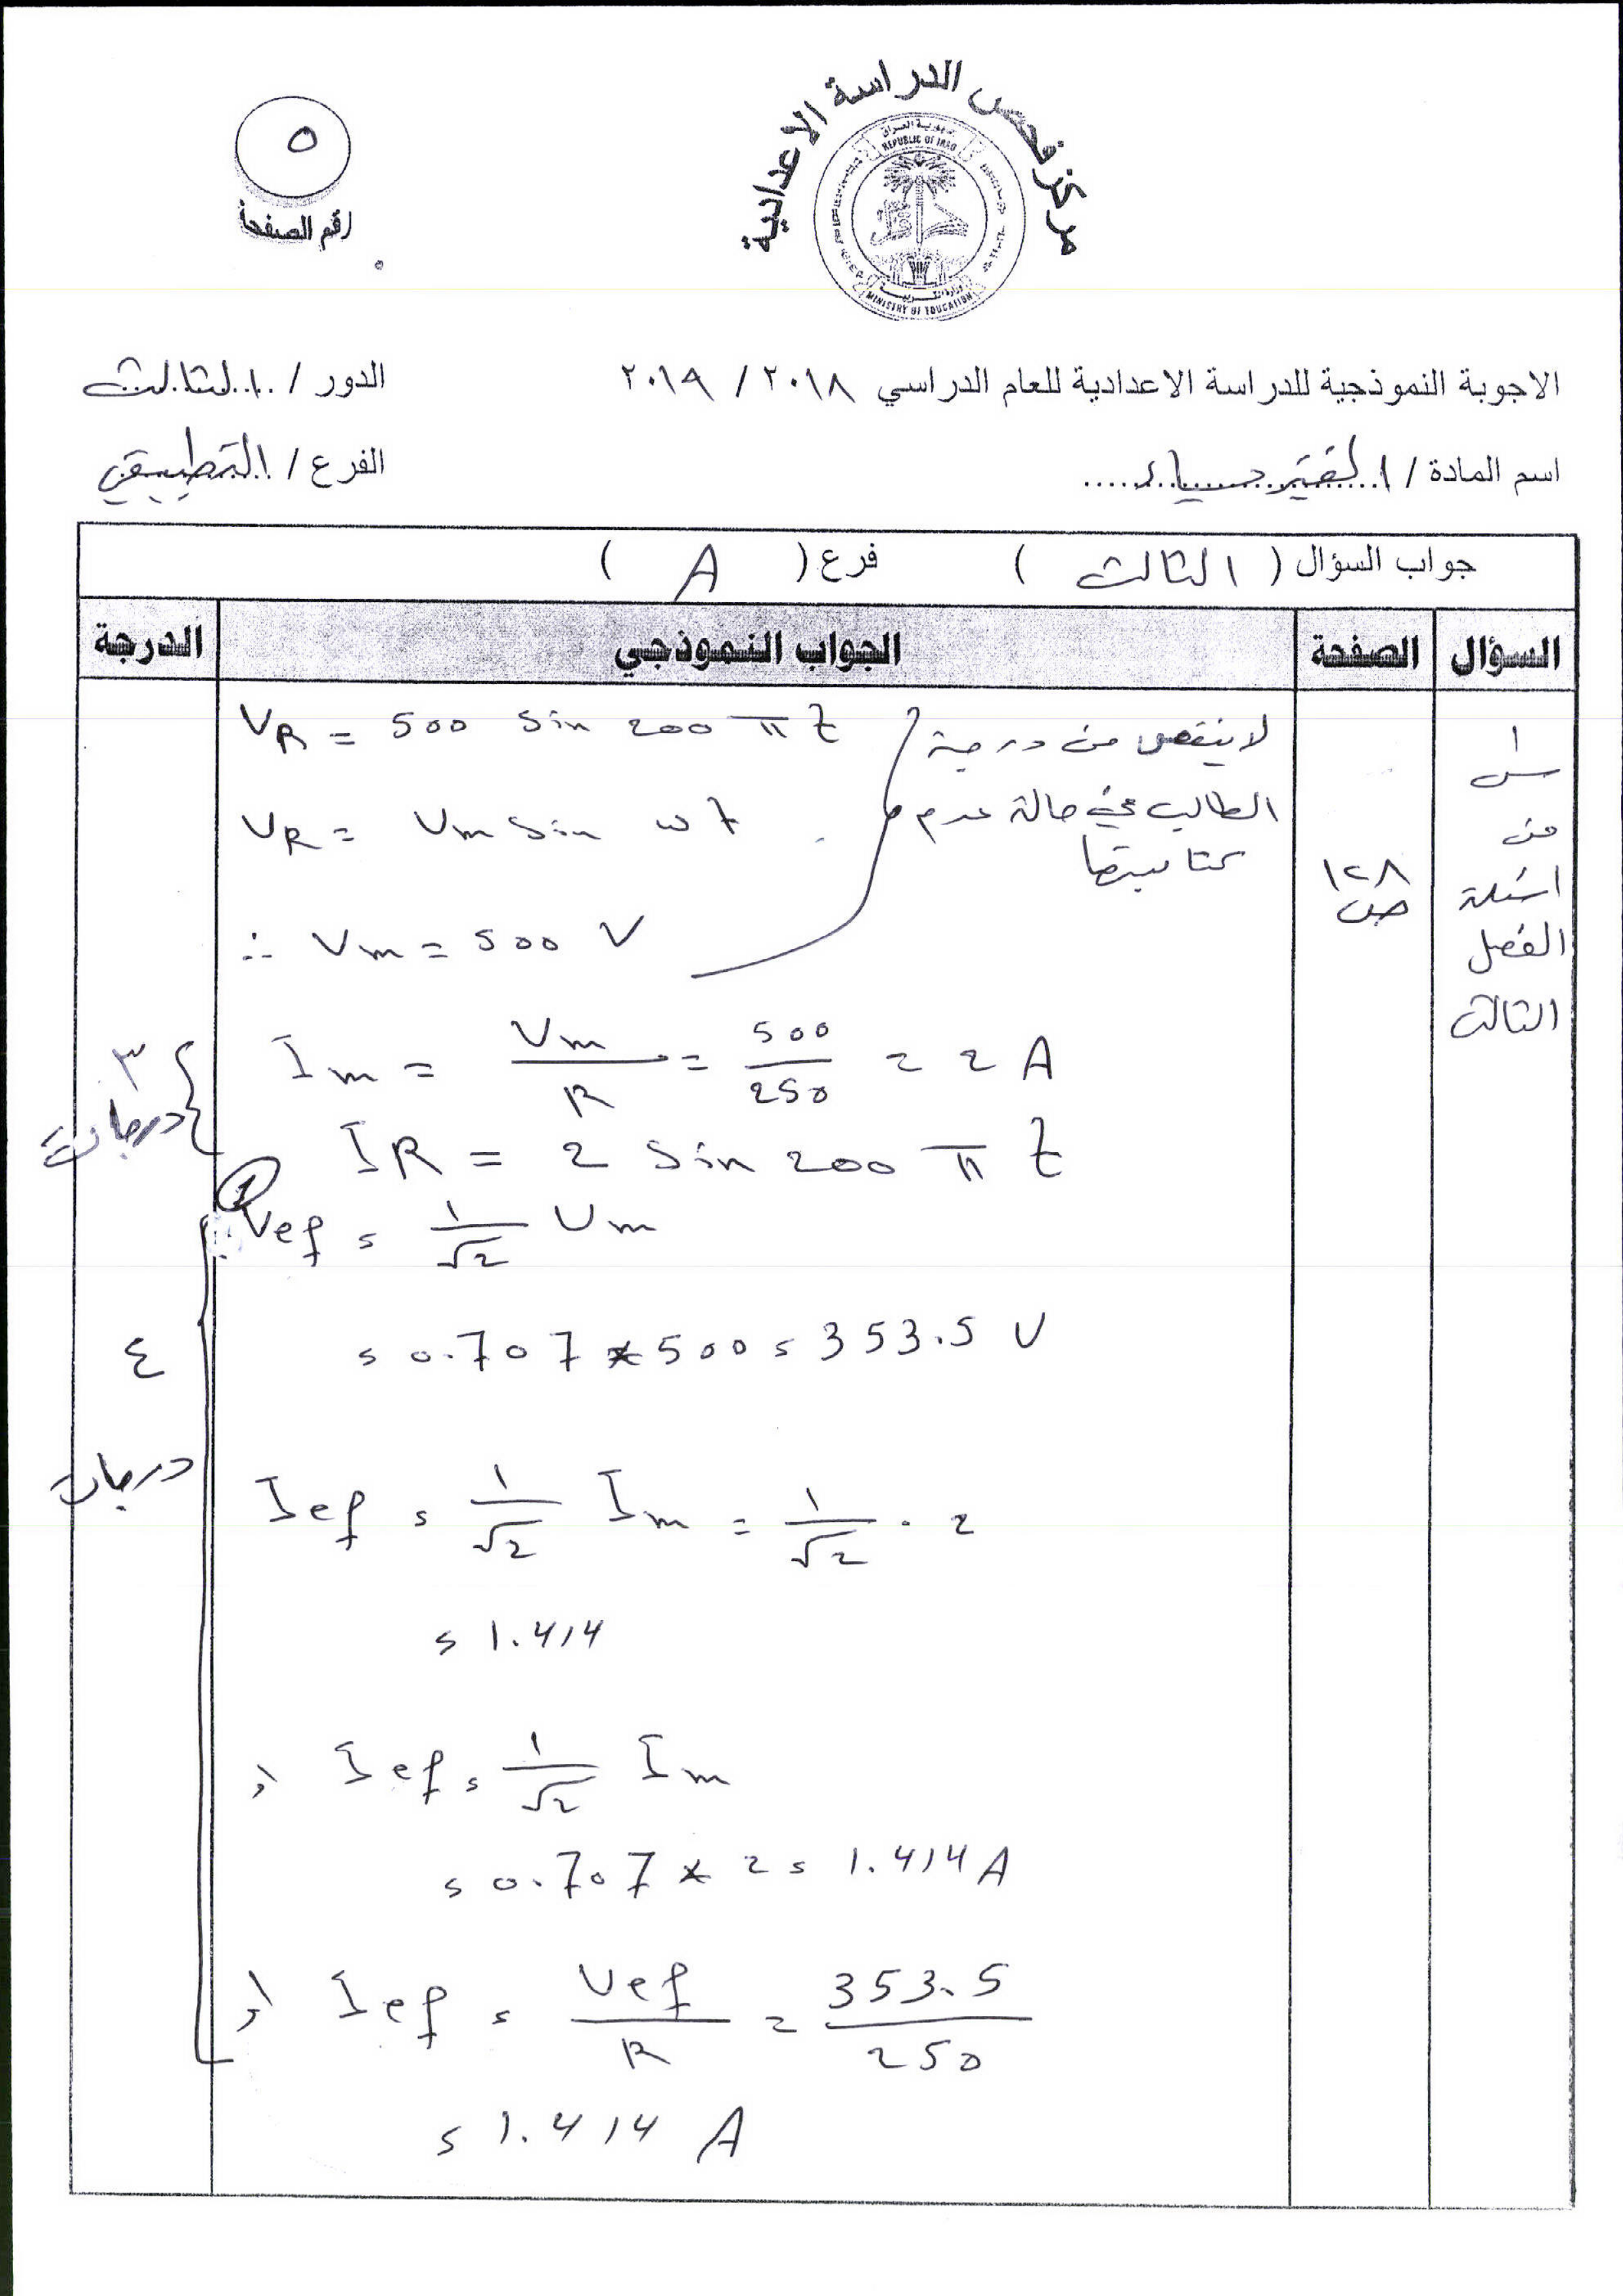 مركز فحص الدراسة الاعدادية
جمهورية العراق
REPUBLIC OF IRAQ
MINISTRY OF EDUCATION
٥
رقم الصفحة
الاجوبة النموذجية للدراسة الاعدادية للعام الدراسي ٢٠١٨ / ٢٠١٩
الدور / الثالث
اسم المادة / الفيزياء
الفرع / التطبيقي
جواب السؤال ( الثالث ) فرع ( A )
السؤال الصفحة الجواب النموذجي الدرجة
س١
من
اسئلة
الفصل
الثالث
١٢٨
ص
VR = 500 Sin 200 π t
لا ينقص من درجة
الطالب في حالة عدم
كتابتها
VR = Vm Sin ωt
∴ Vm = 500 V
Im = Vm / R = 500 / 250 = 2 A
IR = 2 Sin 200 π t
٣
درجات
1
Vef = 1/√2 Vm
= 0.707 * 500 = 353.5 V
٤
درجات
Ief = 1/√2 Im = 1/√2 . 2
= 1.414
او Ief = 1/√2 Im
= 0.707 * 2 = 1.414 A
او Ief = Vef / R = 353.5 / 250
= 1.414 A